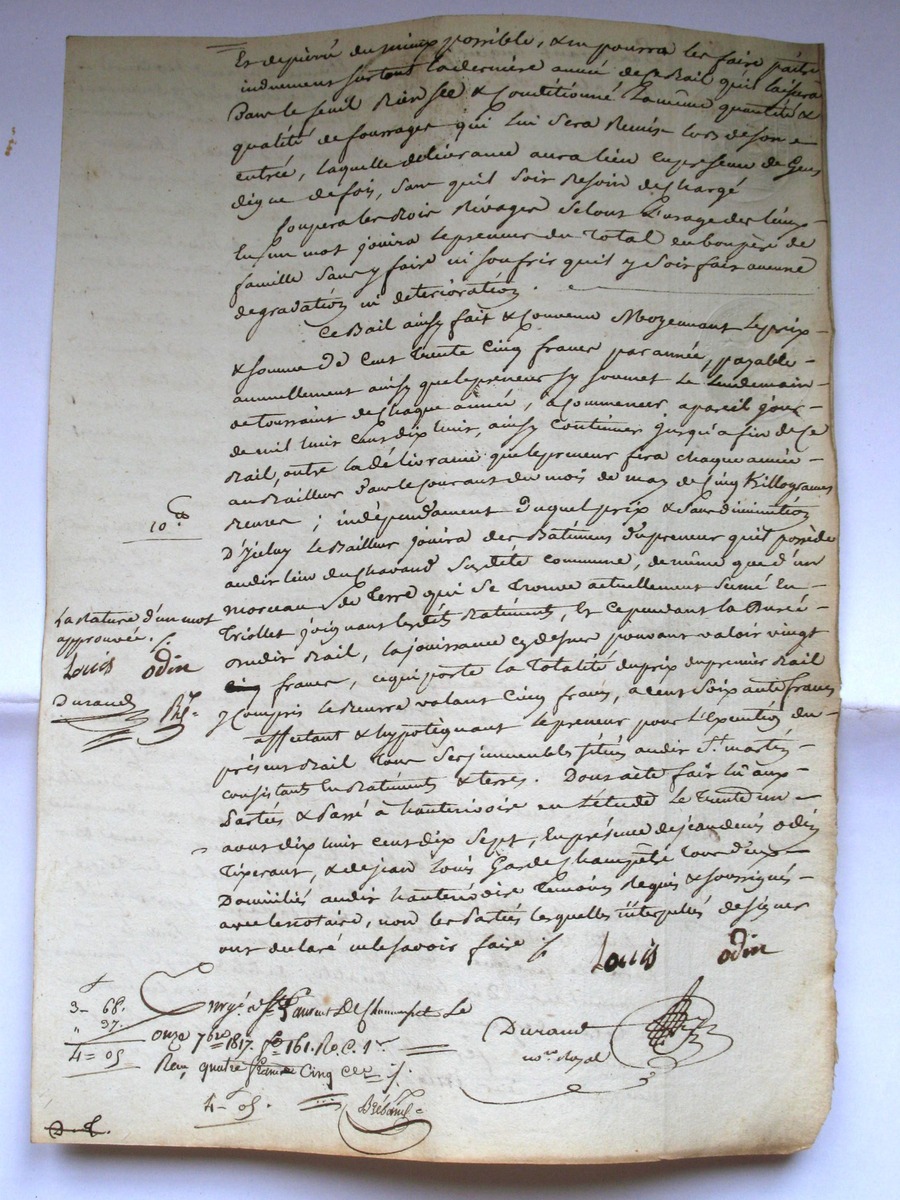 Et depierré du mieux possible, & ne pourra les faire paitre
induement surtout la derniere année de ce Bail qu'il laissera
dans le fenil Bien sec & Conditionné la même quantité &
qualité de fourrages qui lui sera Remis lors de son
entrée, laquelle délivrance aura lieu en presence de Gens
digne de foy, sans qu'il soit Besoin de chargé
Coupera les Bois Rivages selont l'usage des lieux
En un mot jouira le preneur du Total en bon père de
famille sans y faire ni soufrir qu'il y soit fait aucune
degradation ni deterioration.
Ce Bail ainsy fait & Convenu Moyennant le prix
& somme de Cent Trente Cinq francs par année, payable
annuellement ainsy que le preneur s'y soumet le lendemain
de toussaint de chaque année, à Commencer a pareil jour
de mil huit cent dix huit, ainsy Continuer jusqu'a fin de ce
Bail, outre la délivrance que le preneur fera chaque année
au Bailleur dans le Courant du mois de may de Cinq Killogrames
Beurre ; indépendament duquel prix & sans diminution
10.
D'Iceluy le Bailleur jouira des Bâtimens du preneur qu'il possède
audit lieu du Chavand susdité commune, de même que d'un
morceau de Terre qui se trouve actuellement semé En
La Rature d'un mot
approuvée.
Triollet joignant lesdits Batiments, Et ce pendant la Durée
Louis odin
dudit Bail, la jouissance cy dessus pouvant valoir vingt
francs, ce qui porte la Totalité du prix du premier Bail
Durand
y Compris le Beurre valant Cinq francs, a cent soixante francs
affectant & hypotèquant le preneur pour l'Execution du
présent Bail tous ses immeubles situés audit St. martin
consistant En Batiments & terres. Dont acte fait lû aux
Parties & Passé à hauterivoire en l'étude Le Trente un
aout dix huit cent dix sept, En présence de jean denis odin
Tixerant, & de jean Louis Garde Champêtre tous deux
Domiciliés audit hauterivoire Temoins Requis & soussignés
avec le notaire, non les Parties lesquelles interpellés de signer
ont declaré ne le savoir faire ./.
Louis odin
3 - 68.
" 37.
4 = 05
Enrgé a St Laurent De Chamousset Le
onze 7bre 1817. fo 161. Ro. C. 1re
Reçu quatre francs Cinq ces ./.
4 - 05.
Durand
nore Royal